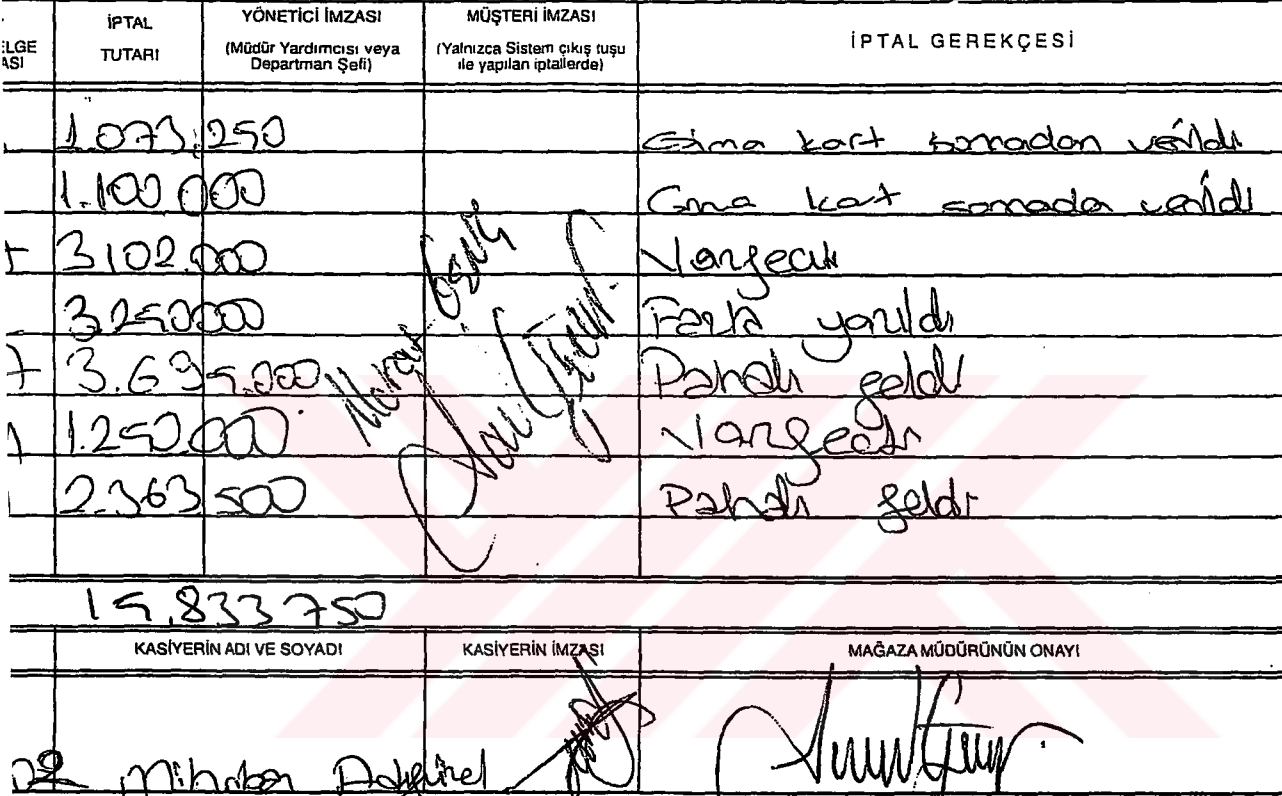 İPTAL TUTARI
YÖNETİCİ İMZASI
(Müdür Yardımcısı veya
Departman Şefi)
MÜŞTERİ İMZASI
(Yalnızca Sistem çıkış tuşu
ile yapılan iptallerde)
İPTAL GEREKÇESİ
1.073.250 Gima kart sonradan verildi
1.100.000 Gima kart sonradan verildi
3.102.000 Vazgeçti
3.250.000 Fazla yazıldı
3.695.000 Pahalı geldi
1.250.000 Vazgeçti
2.363.500 Pahalı geldi
15.833.750
KASİYERİN ADI VE SOYADI
KASİYERİN İMZASI
MAĞAZA MÜDÜRÜNÜN ONAYI
Mihriban